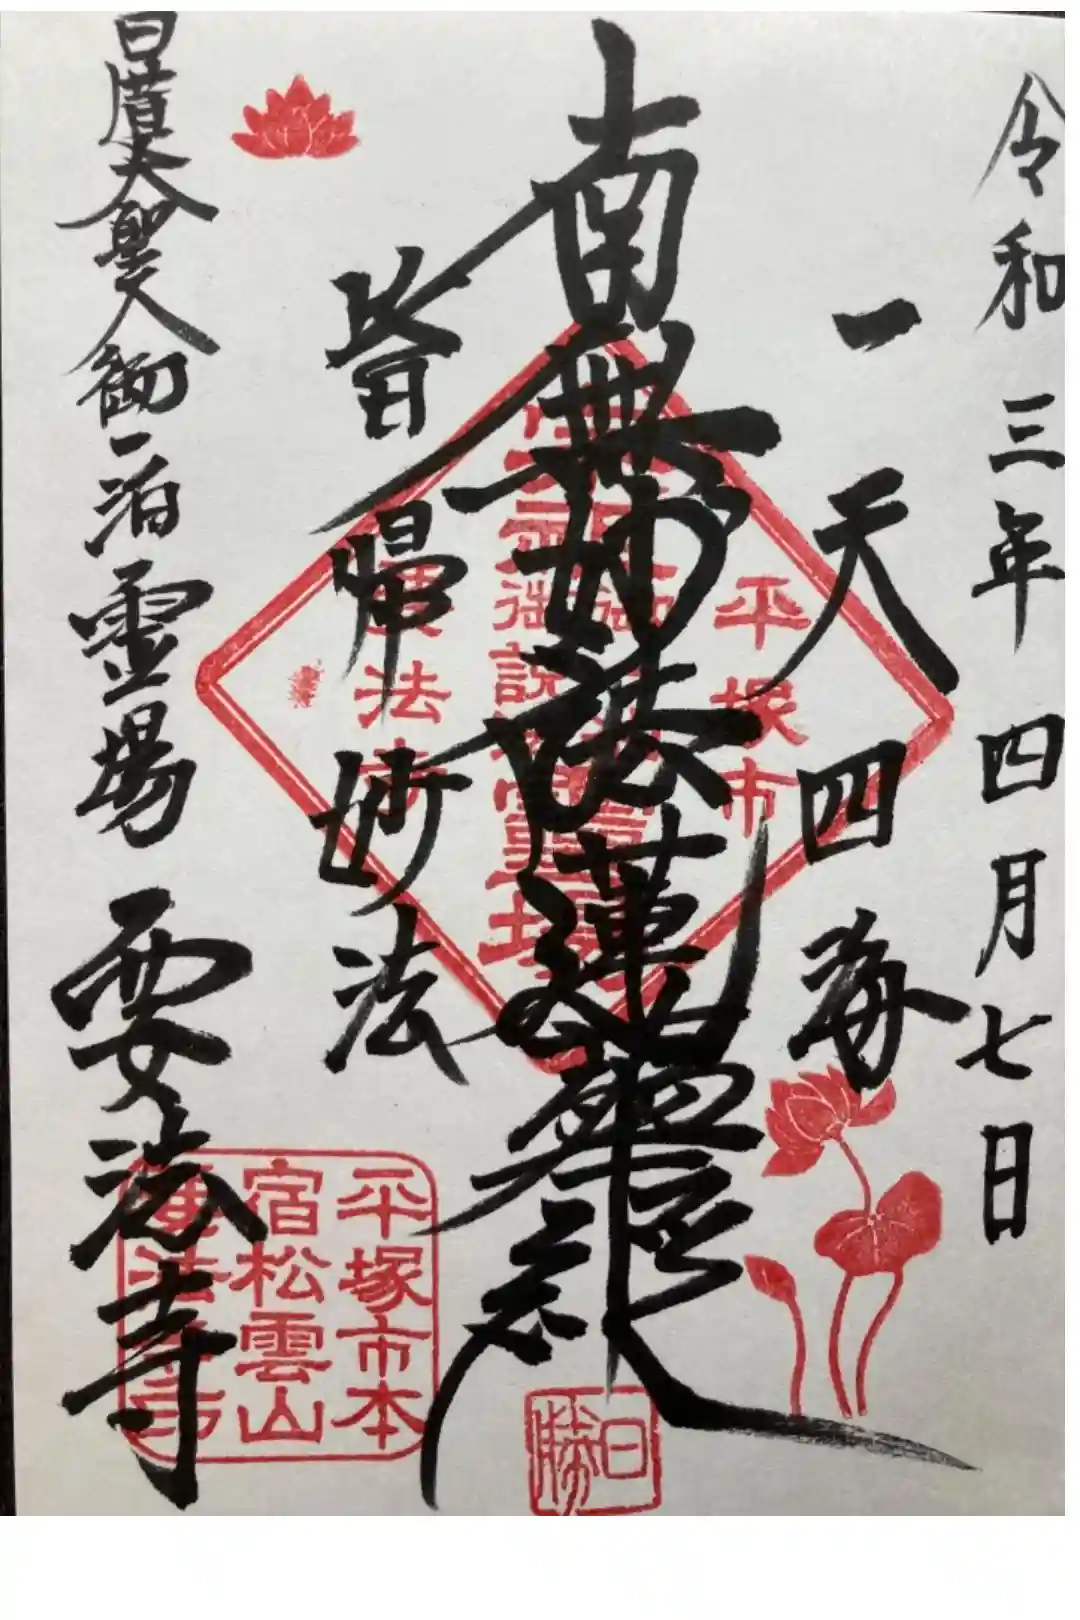 令和三年四月七日
一天四海
南無妙法蓮華経
皆帰妙法
日蓮大聖人御一泊霊場 要法寺
平塚市
御説 霊場
法寺
平塚市本
宿松雲山
要法寺
日勝